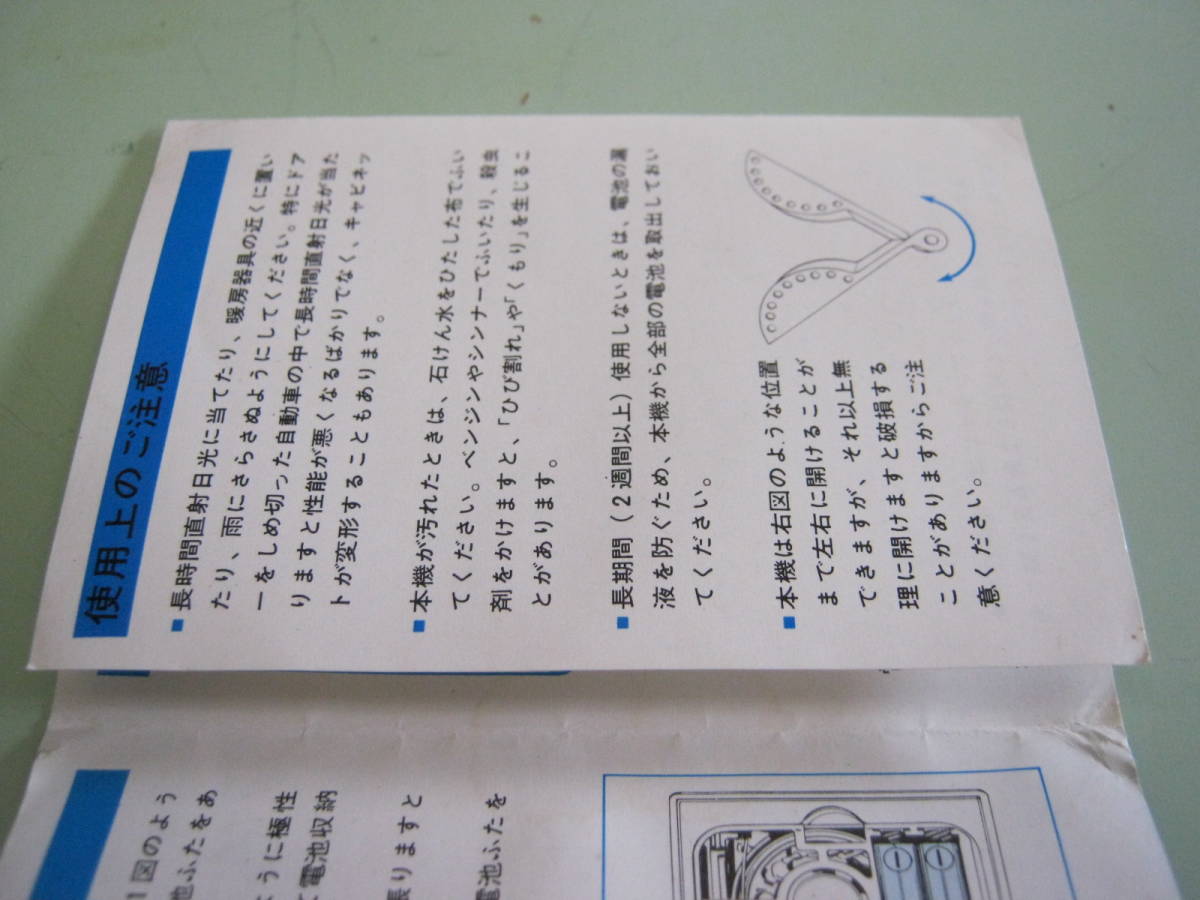 使用上のご注意
■長時間直射日光に当てたり、暖房器具の近くに置い
たり、雨にさらさぬようにしてください。特にドア
ーをしめ切った自動車の中で長時間直射日光が当た
りますと性能が悪くなるばかりでなく、キャビネッ
トが変形することもあります。
■本機が汚れたときは、石けん水をひたした布でふい
てください。ベンジンやシンナーでふいたり、殺虫
剤をかけますと、「ひび割れ」や「くもり」を生じるこ
とがあります。
■長期間（2週間以上）使用しないときは、電池の漏
液を防ぐため、本機から全部の電池を取出しておい
てください。
■本機は右図のような位置
まで左右に開けることが
できますが、それ以上無
理に開けますと破損する
ことがありますからご注
意ください。
1図のよう
池ふたをあ
うに極性
電池収納
張りますと
電池ふたを